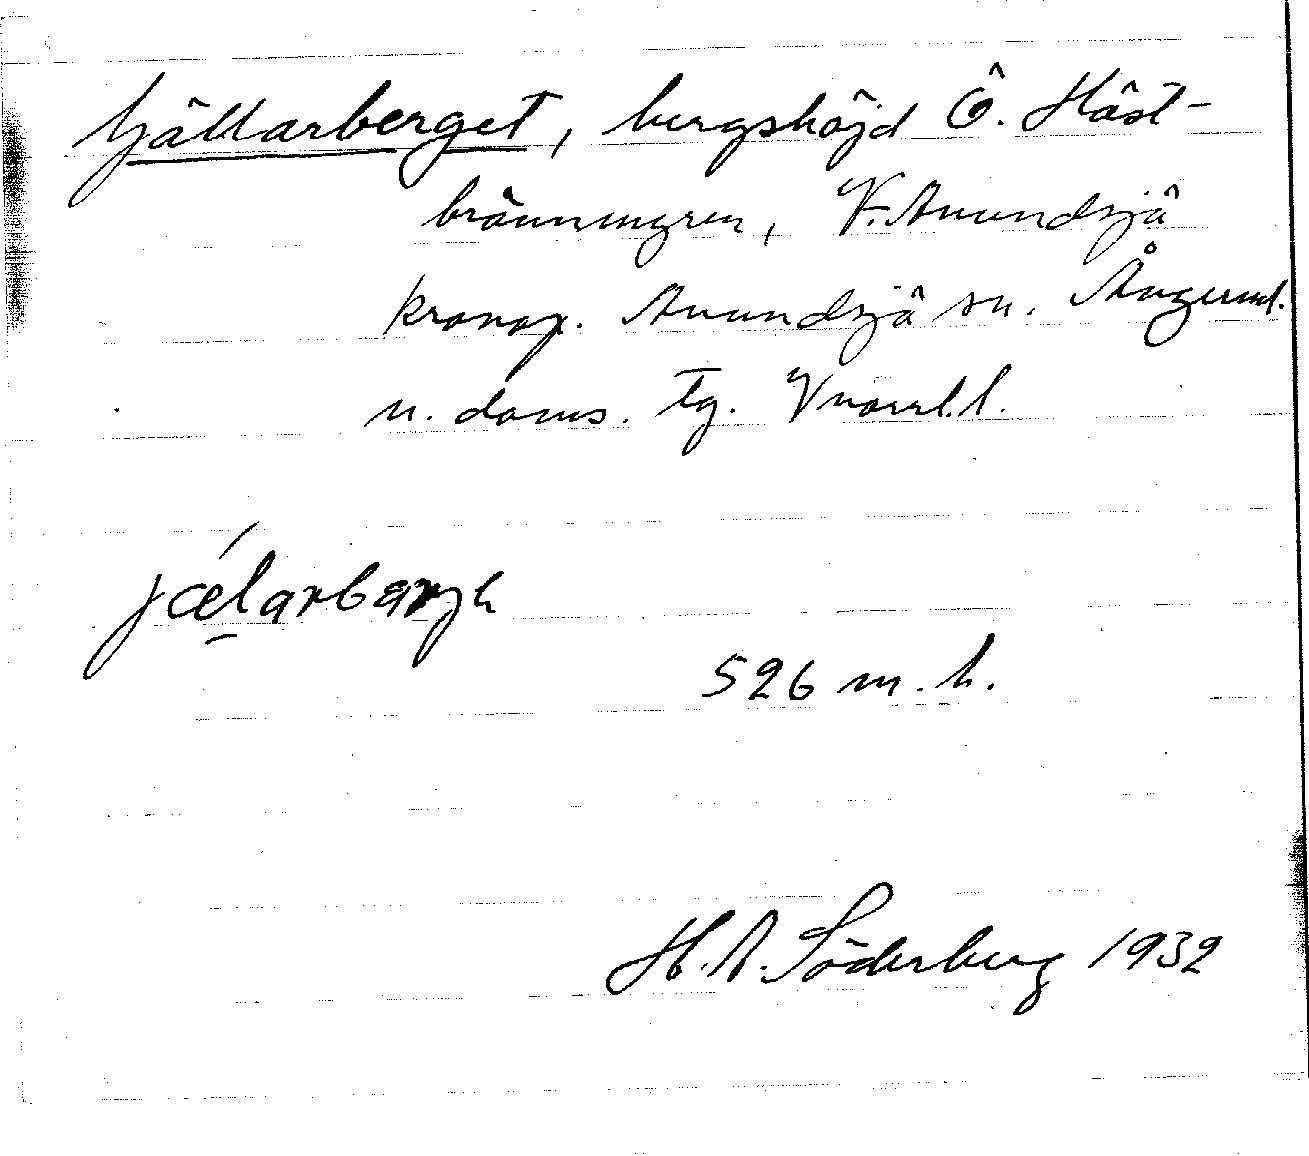 Gjällarberget, bergshöjd Ö. Häst-
bränningen, V. Anundsjö
kronop. Anundsjö sn. Ångerml.
n. doms. tg. Vnorrl. l.
jælarbærje
526 m. h.
H. A. Söderberg 1932